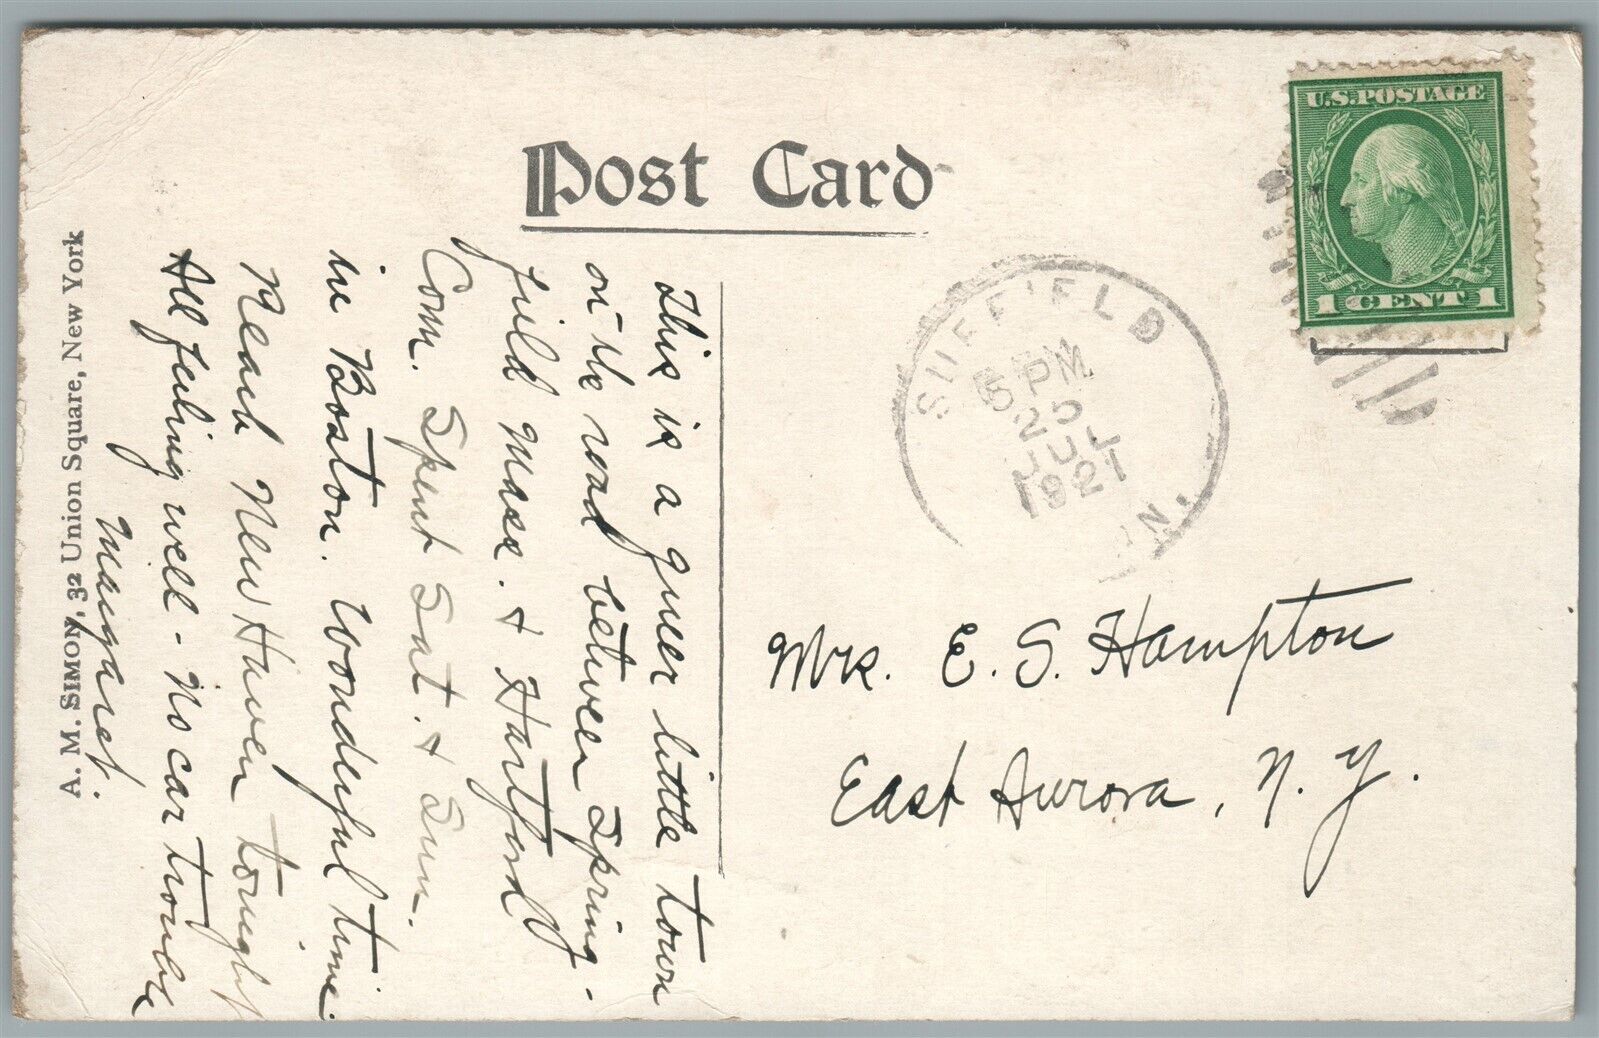 Post Card
U.S. POSTAGE
1 CENT 1
SUFFIELD
5 PM
25
JUL
1921
This is a queer little town
on the road between Spring-
field Mass. & Hartford
Conn. Spent Sat. & Sun.
in Boston. Wonderful time.
Reach New Haven tonight
All feeling well - No car trouble
Margaret.
Mrs. E. S. Hampton
East Aurora, N. Y.
A. M. SIMON, 32 Union Square, New York